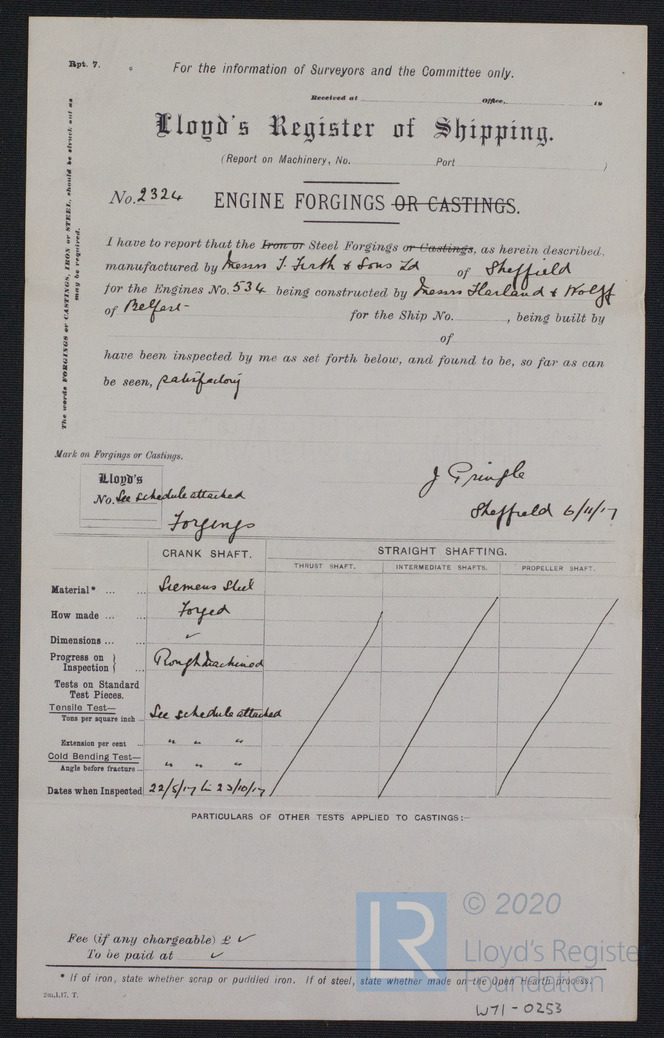 Rpt. 7.
For the information of Surveyors and the Committee only.
Received at Office, 19
Lloyd's Register of Shipping.
(Report on Machinery, No. Port )
No. 2324 ENGINE FORGINGS OR CASTINGS.
The words FORGINGS or CASTINGS, IRON or STEEL, should be struck out as
may be required.
I have to report that the Iron or Steel Forgings or Castings, as herein described,
manufactured by Messrs T. Firth & Sons Ld of Sheffield
for the Engines No. 534 being constructed by Messrs Harland & Wolff
of Belfast for the Ship No. , being built by
of
have been inspected by me as set forth below, and found to be, so far as can
be seen, satisfactory
Mark on Forgings or Castings.
Lloyd's
No. See schedule attached
Forgings
J Pringle
Sheffield 6/11/17
CRANK SHAFT. STRAIGHT SHAFTING.
THRUST SHAFT. INTERMEDIATE SHAFTS. PROPELLER SHAFT.
Material* ... ... Siemens Steel
How made ... ... Forged
Dimensions ... ... ✓
Progress on } Inspection } ... Rough Machined
Tests on Standard
Test Pieces.
Tensile Test—
Tons per square inch ... See schedule attached
Extension per cent ... " " "
Cold Bending Test—
Angle before fracture ... " " "
Dates when Inspected 22/5/17 to 23/10/17
PARTICULARS OF OTHER TESTS APPLIED TO CASTINGS:—
Fee (if any chargeable) £ ✓
To be paid at ✓
* If of iron, state whether scrap or puddled iron. If of steel, state whether made on the Open Hearth process.
2m,1,17. T.
LR
© 2020
Lloyd's Register
Foundation
W71-0253